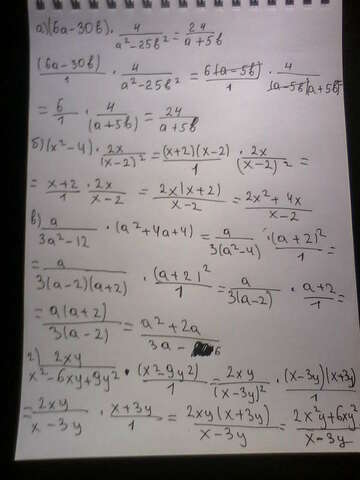 а) (6a-30b) · 4/(a²-25b²) = 24/(a+5b)
(6a-30b)/1 · 4/(a²-25b²) = 6(a-5b)/1 · 4/(a-5b)(a+5b)
= 6/1 · 4/(a+5b) = 24/(a+5b)
б) (x²-4) · 2x/(x-2)² = (x+2)(x-2)/1 · 2x/(x-2)² =
= x+2/1 · 2x/x-2 = 2x(x+2)/x-2 = 2x²+4x/x-2
в) a/3a²-12 · (a²+4a+4) = a/3(a²-4) · (a+2)²/1 =
= a/3(a-2)(a+2) · (a+2)²/1 = a/3(a-2) · a+2/1 =
= a(a+2)/3(a-2) = a²+2a/3a-6
г) 2xy/x²-6xy+9y² · (x²-9y²)/1 = 2xy/(x-3y)² · (x-3y)(x+3y)/1
= 2xy/x-3y · x+3y/1 = 2xy(x+3y)/x-3y = 2x²y+6xy²/x-3y